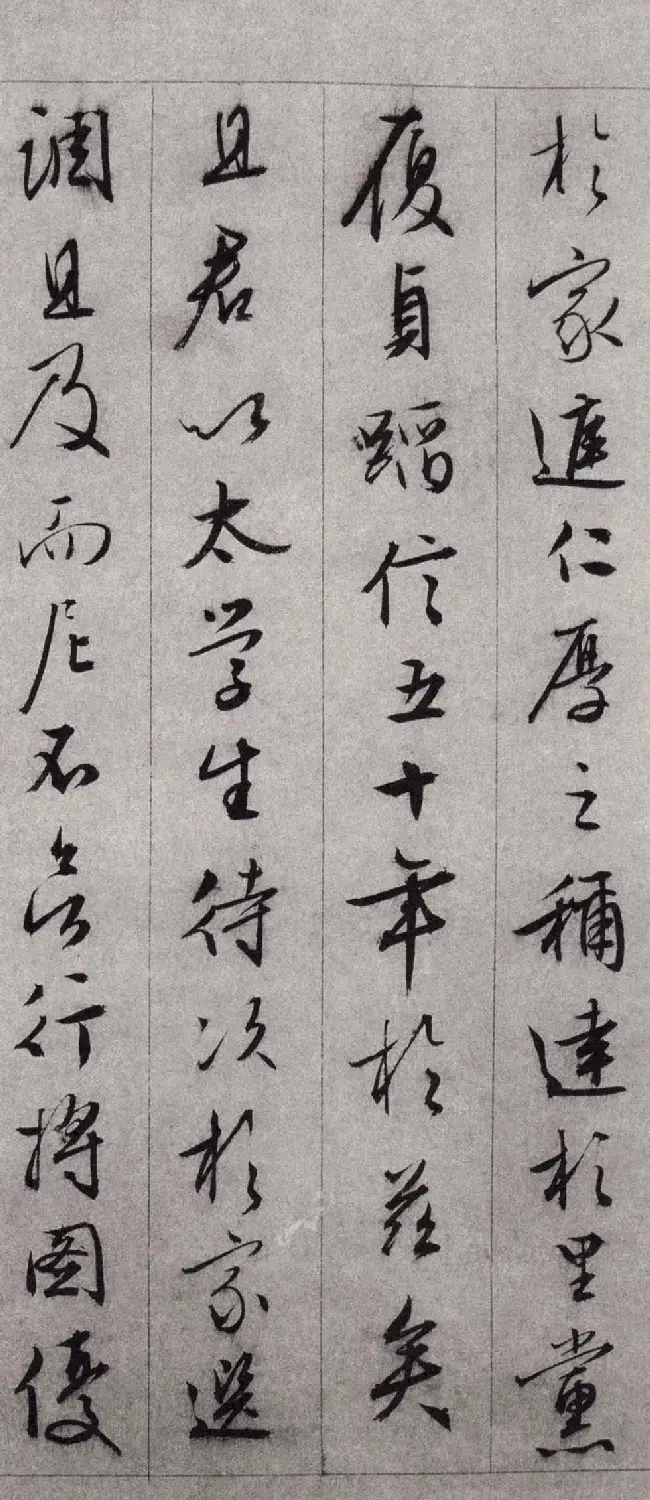 於家遮仁厚之稱達於里黨
履貞蹈信五十年於茲矣
且君以太學生待次於家選
調且及而尼不啓行將圖優